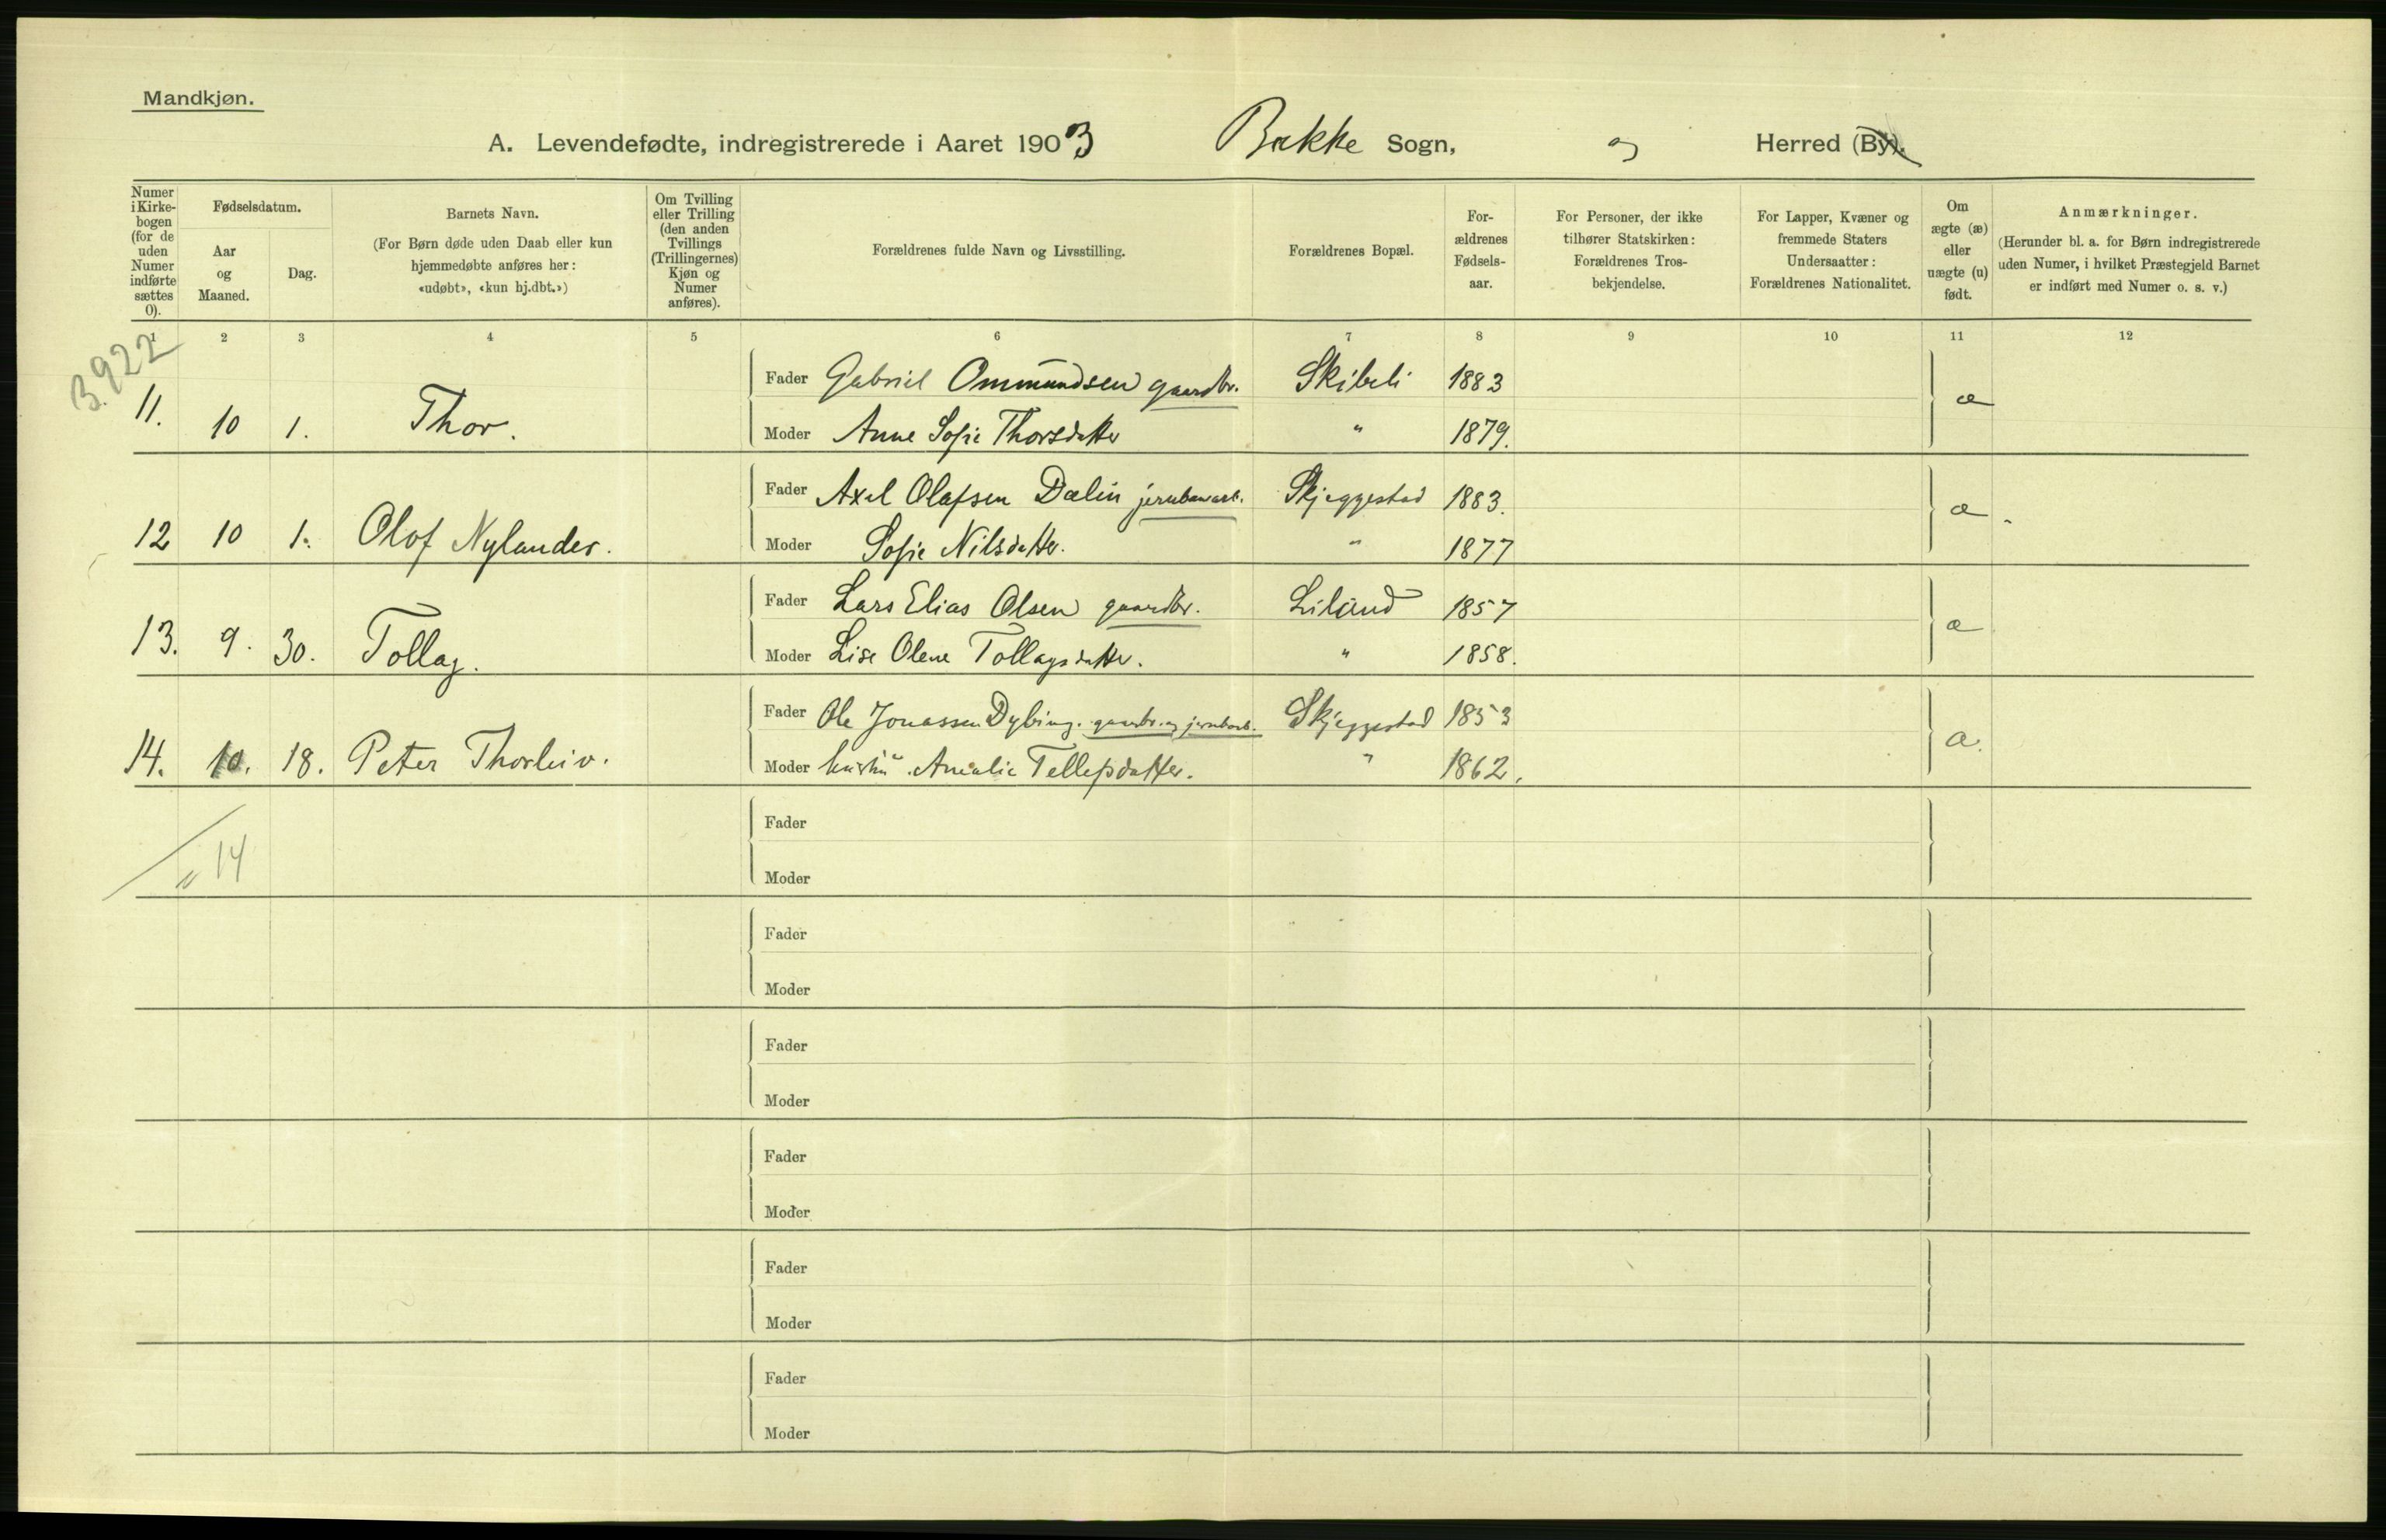 Mandkjøn.
A. Levendefødte, indregistrerede i Aaret 1903 Bakke Sogn, og Herred (By).
Numer i Kirke-bogen (for de uden Numer indførte sættes 0).
Fødselsdatum.
Aar og Maaned.
Dag.
Barnets Navn.
(For Børn døde uden Daab eller kun hjemmedøbte anføres her: «udøbt», «kun hj.dbt.»)
Om Tvilling eller Trilling (den anden Tvillings (Trillingernes) Kjøn og Numer anføres).
Forældrenes fulde Navn og Livsstilling.
Forældrenes Bopæl.
For-ældrenes Fødsels-aar.
For Personer, der ikke tilhører Statskirken: Forældrenes Tros-bekjendelse.
For Lapper, Kvæner og fremmede Staters Undersaatter: Forældrenes Nationalitet.
Om ægte (æ) eller uægte (u) født.
Anmærkninger.
(Herunder bl. a. for Børn indregistrerede uden Numer, i hvilket Præstegjeld Barnet er indført med Numer o. s. v.)
1 2 3 4 5 6 7 8 9 10 11 12
3.922
Fader Gabriel Ommundsen gaardbr. Skibeli 1883
11. 10 1. Thor. æ
Moder Anne Sofie Thorsdatter " 1879.
Fader Axel Olafsen Dalin jernbanearb. Skjeggestad 1883.
12 10 1. Olof Nylander. æ.
Moder Sofie Nilsdatter. " 1877
Fader Lars Elias Olsen gaardbr. Liland 1857
13. 9. 30. Tollag. æ
Moder Lise Olene Tollagsdatter. " 1858.
Fader Ole Jonassen Dybing. gaardbr. og jernbarb. Skjeggestad 1853
14. 10. 18. Peter Thorleiv. æ.
Moder Amalie Tellefsdatter. " 1862.
" 14
Fader
Moder
Fader
Moder
Fader
Moder
Fader
Moder
Fader
Moder
Fader
Moder